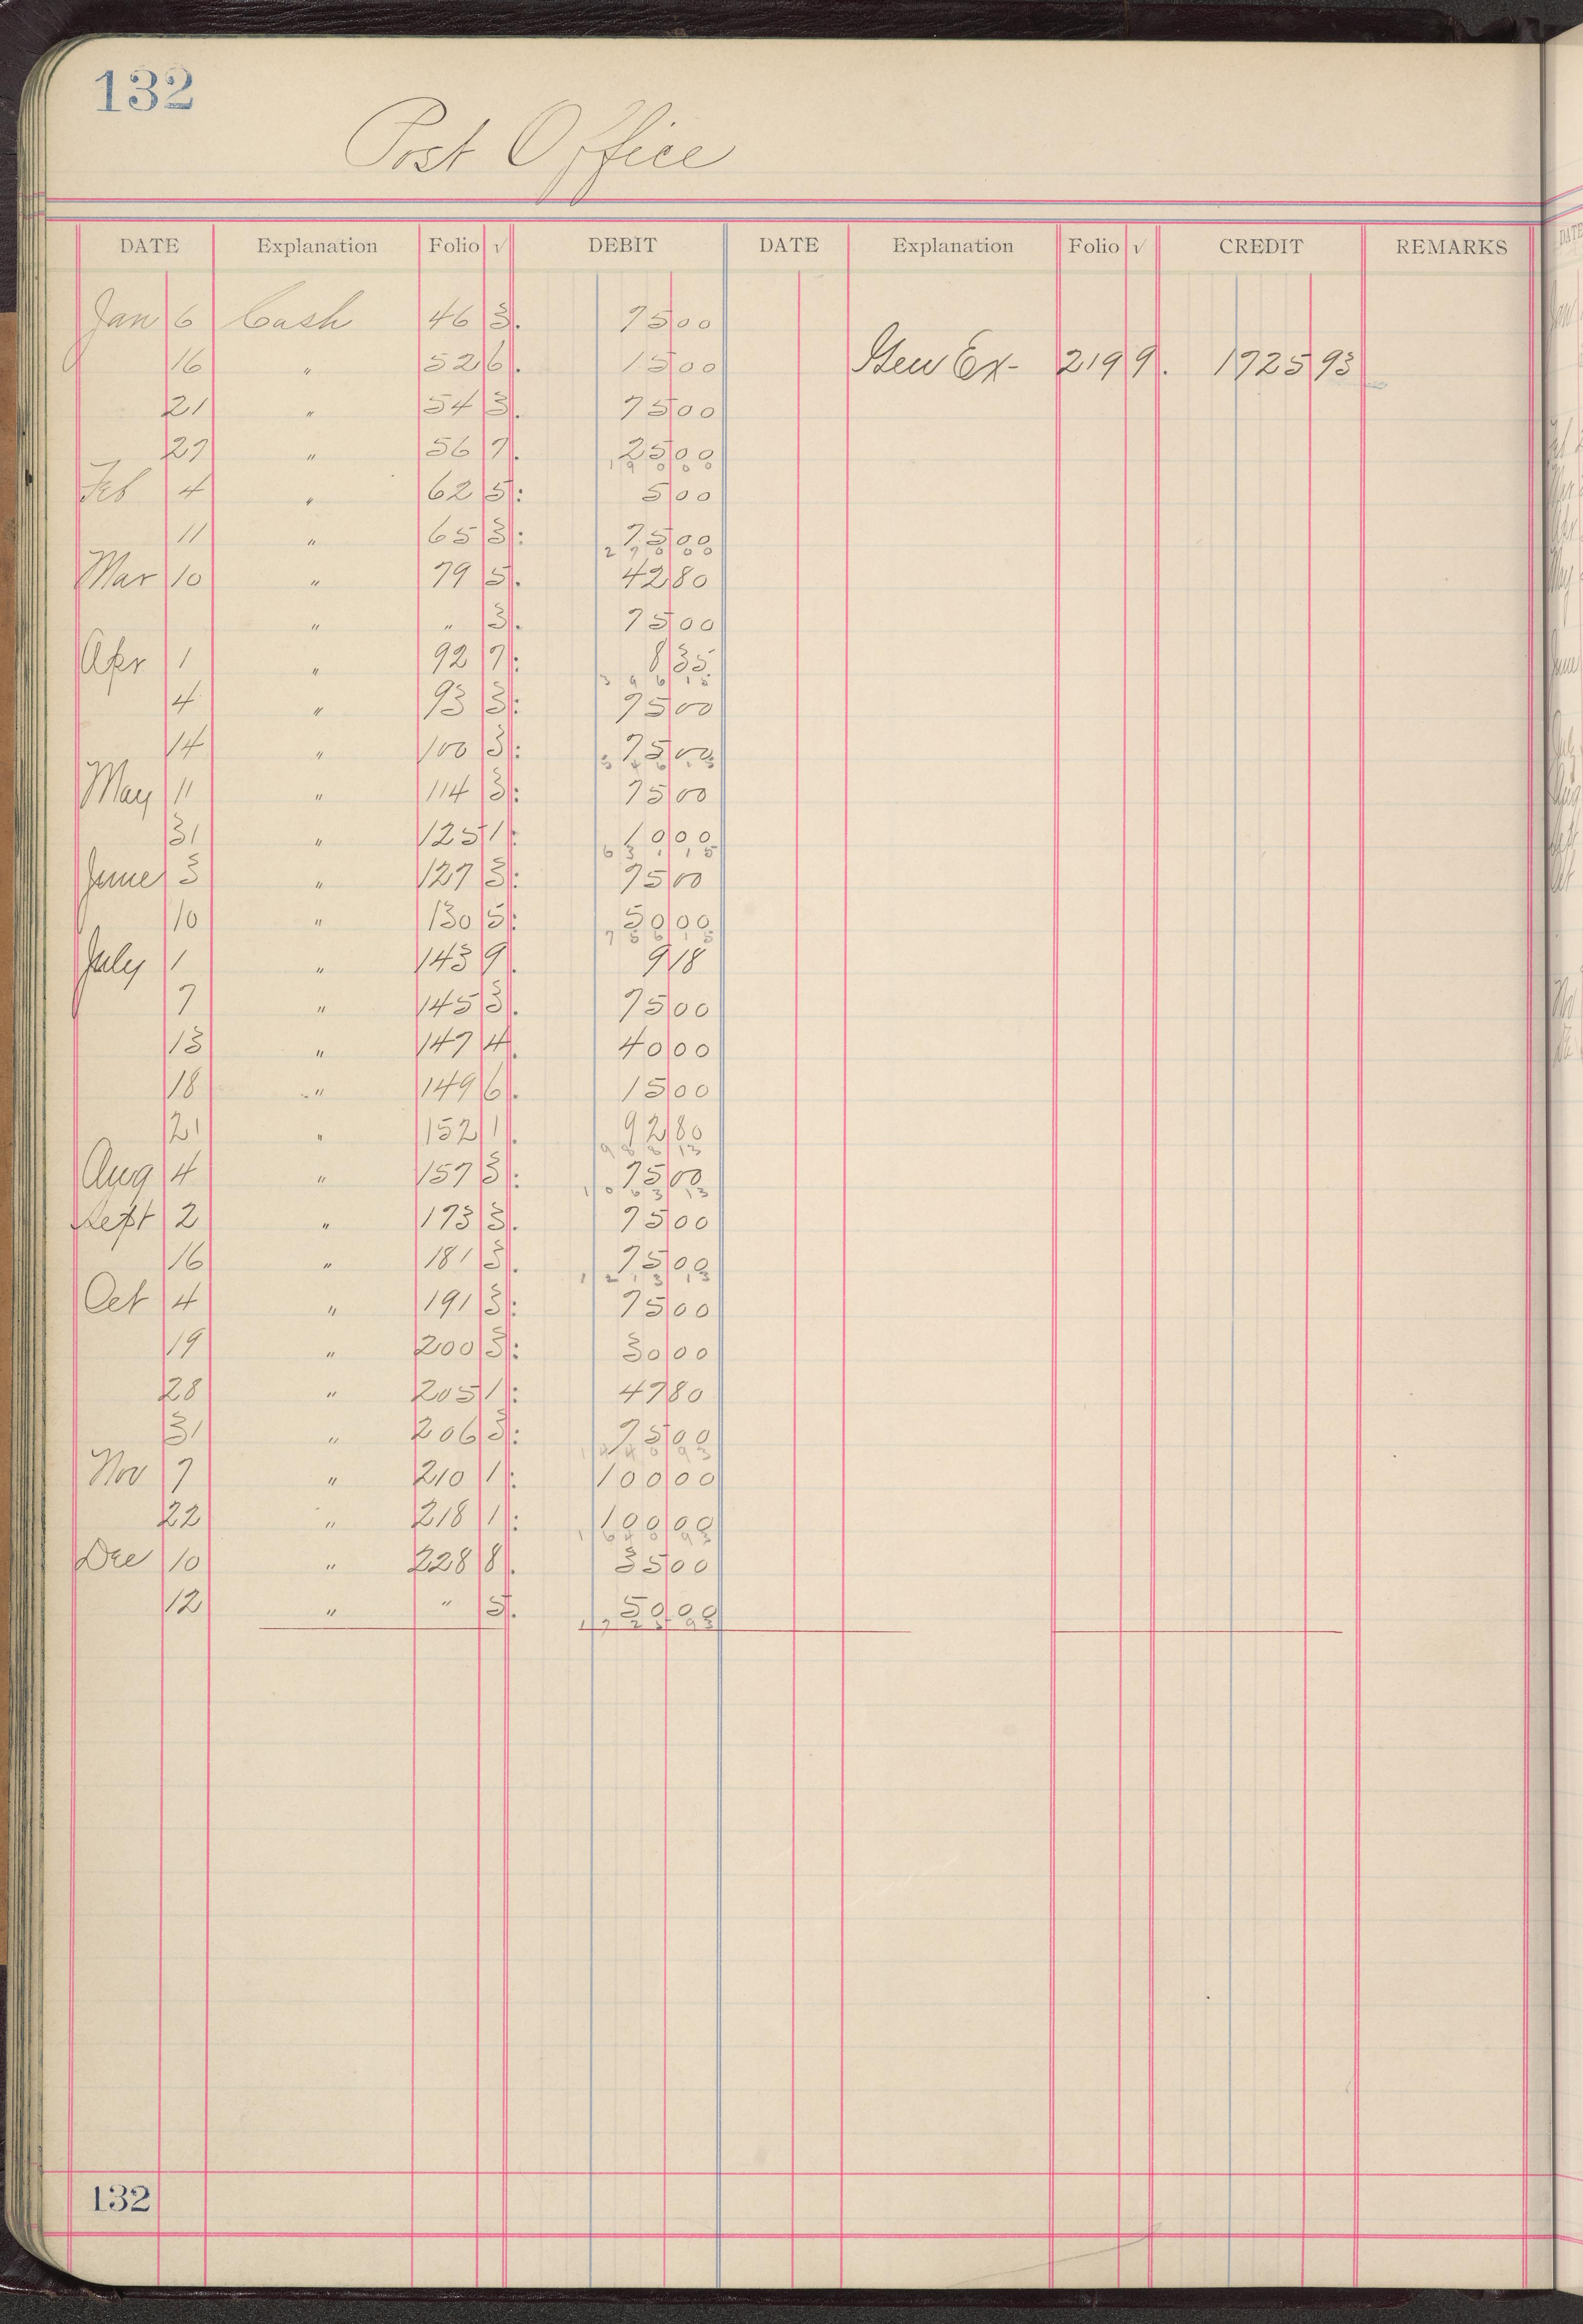 132
Post Office
DATE Explanation Folio √ DEBIT DATE Explanation Folio √ CREDIT REMARKS
Jan 6 Cash 46 3. 75 00
16 " 52 6. 15 00 Gen Ex- 219 9. 1725 93
21 " 54 3. 75 00
27 " 56 7. 25 00
190 00
Feb 4 " 62 5: 5 00
11 " 65 3: 75 00
270 00
Mar 10 " 79 5. 42 80
" " 3. 75 00
Apr 1 " 92 7: 8 35
396 15
4 " 93 3: 75 00
14 " 100 3: 75 00
546 15
May 11 " 114 3: 75 00
31 " 125 1: 10 00
631 15
June 3 " 127 3: 75 00
10 " 130 5: 50 00
756 15
July 1 " 143 9. 9 18
7 " 145 3. 75 00
13 " 147 4. 40 00
18 " 149 6. 15 00
21 " 152 1. 92 80
988 13
Aug 4 " 157 3: 75 00
1063 13
Sept 2 " 173 3. 75 00
16 " 181 3. 75 00
1213 13
Oct 4 " 191 3: 75 00
19 " 200 3: 30 00
28 " 205 1: 47 80
31 " 206 3: 75 00
1440 93
Nov 7 " 210 1: 100 00
22 " 218 1: 100 00
1640 93
Dec 10 " 228 8. 35 00
12 " " 5. 50 00
1725 93
132